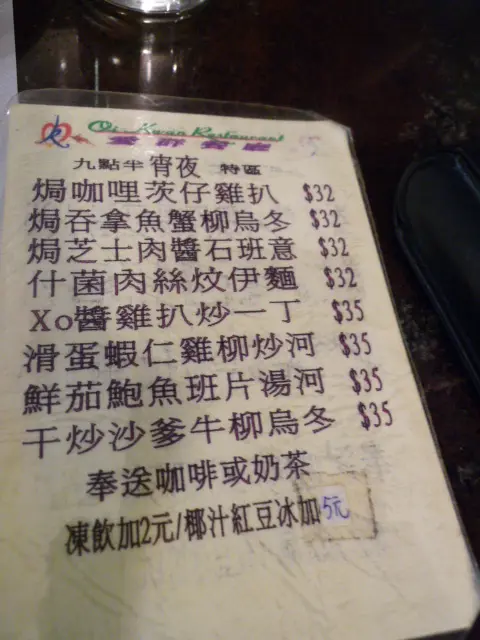 Oi-Kwan Restaurant
愛群餐廳
九點半宵夜 特區
焗咖哩茨仔雞扒 $32
焗吞拿魚蟹柳烏冬 $32
焗芝士肉醬石班意 $32
什菌肉絲炆伊麵 $32
Xo醬雞扒炒一丁 $35
滑蛋蝦仁雞柳炒河 $35
鮮茄鮑魚班片湯河 $35
干炒沙爹牛柳烏冬 $35
奉送咖啡或奶茶
凍飲加2元/椰汁紅豆冰加5元